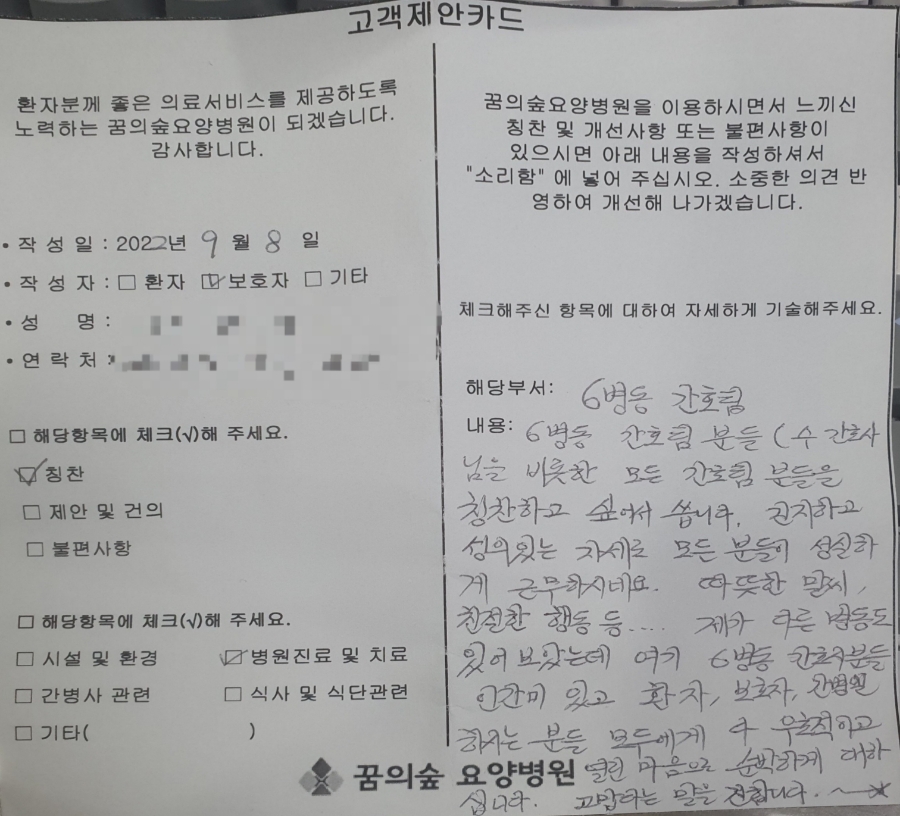 고객제안카드
환자분께 좋은 의료서비스를 제공하도록
노력하는 꿈의숲요양병원이 되겠습니다.
감사합니다.
• 작 성 일 : 2022년 9 월 8 일
• 작 성 자 : □ 환자 ☑ 보호자 □ 기타
• 성 명 :
• 연 락 처 :
□ 해당항목에 체크(√)해 주세요.
☑ 칭찬
□ 제안 및 건의
□ 불편사항
□ 해당항목에 체크(√)해 주세요.
□ 시설 및 환경 ☑ 병원진료 및 치료
□ 간병사 관련 □ 식사 및 식단관련
□ 기타( )
꿈의숲요양병원을 이용하시면서 느끼신
칭찬 및 개선사항 또는 불편사항이
있으시면 아래 내용을 작성하셔서
"소리함" 에 넣어 주십시오. 소중한 의견 반
영하여 개선해 나가겠습니다.
체크해주신 항목에 대하여 자세하게 기술해주세요.
해당부서: 6병동 간호팀
내용: 6병동 간호팀 분들 (수 간호사
님을 비롯한 모든 간호팀 분들을
칭찬하고 싶어서 씁니다. 진지하고
성의있는 자세로 모든 분들이 성실하
게 근무하시네요. 따뜻한 말씨,
친절한 행동 등.... 제가 다른 병동도
있어 보았는데 여기 6병동 간호사분들
인간미 있고 환자, 보호자, 간병일
하시는 분들 모두에게 다 우호적이고
열린 마음으로 순박하게 대하
십니다. 고맙다는 말을 전합니다.
꿈의숲 요양병원